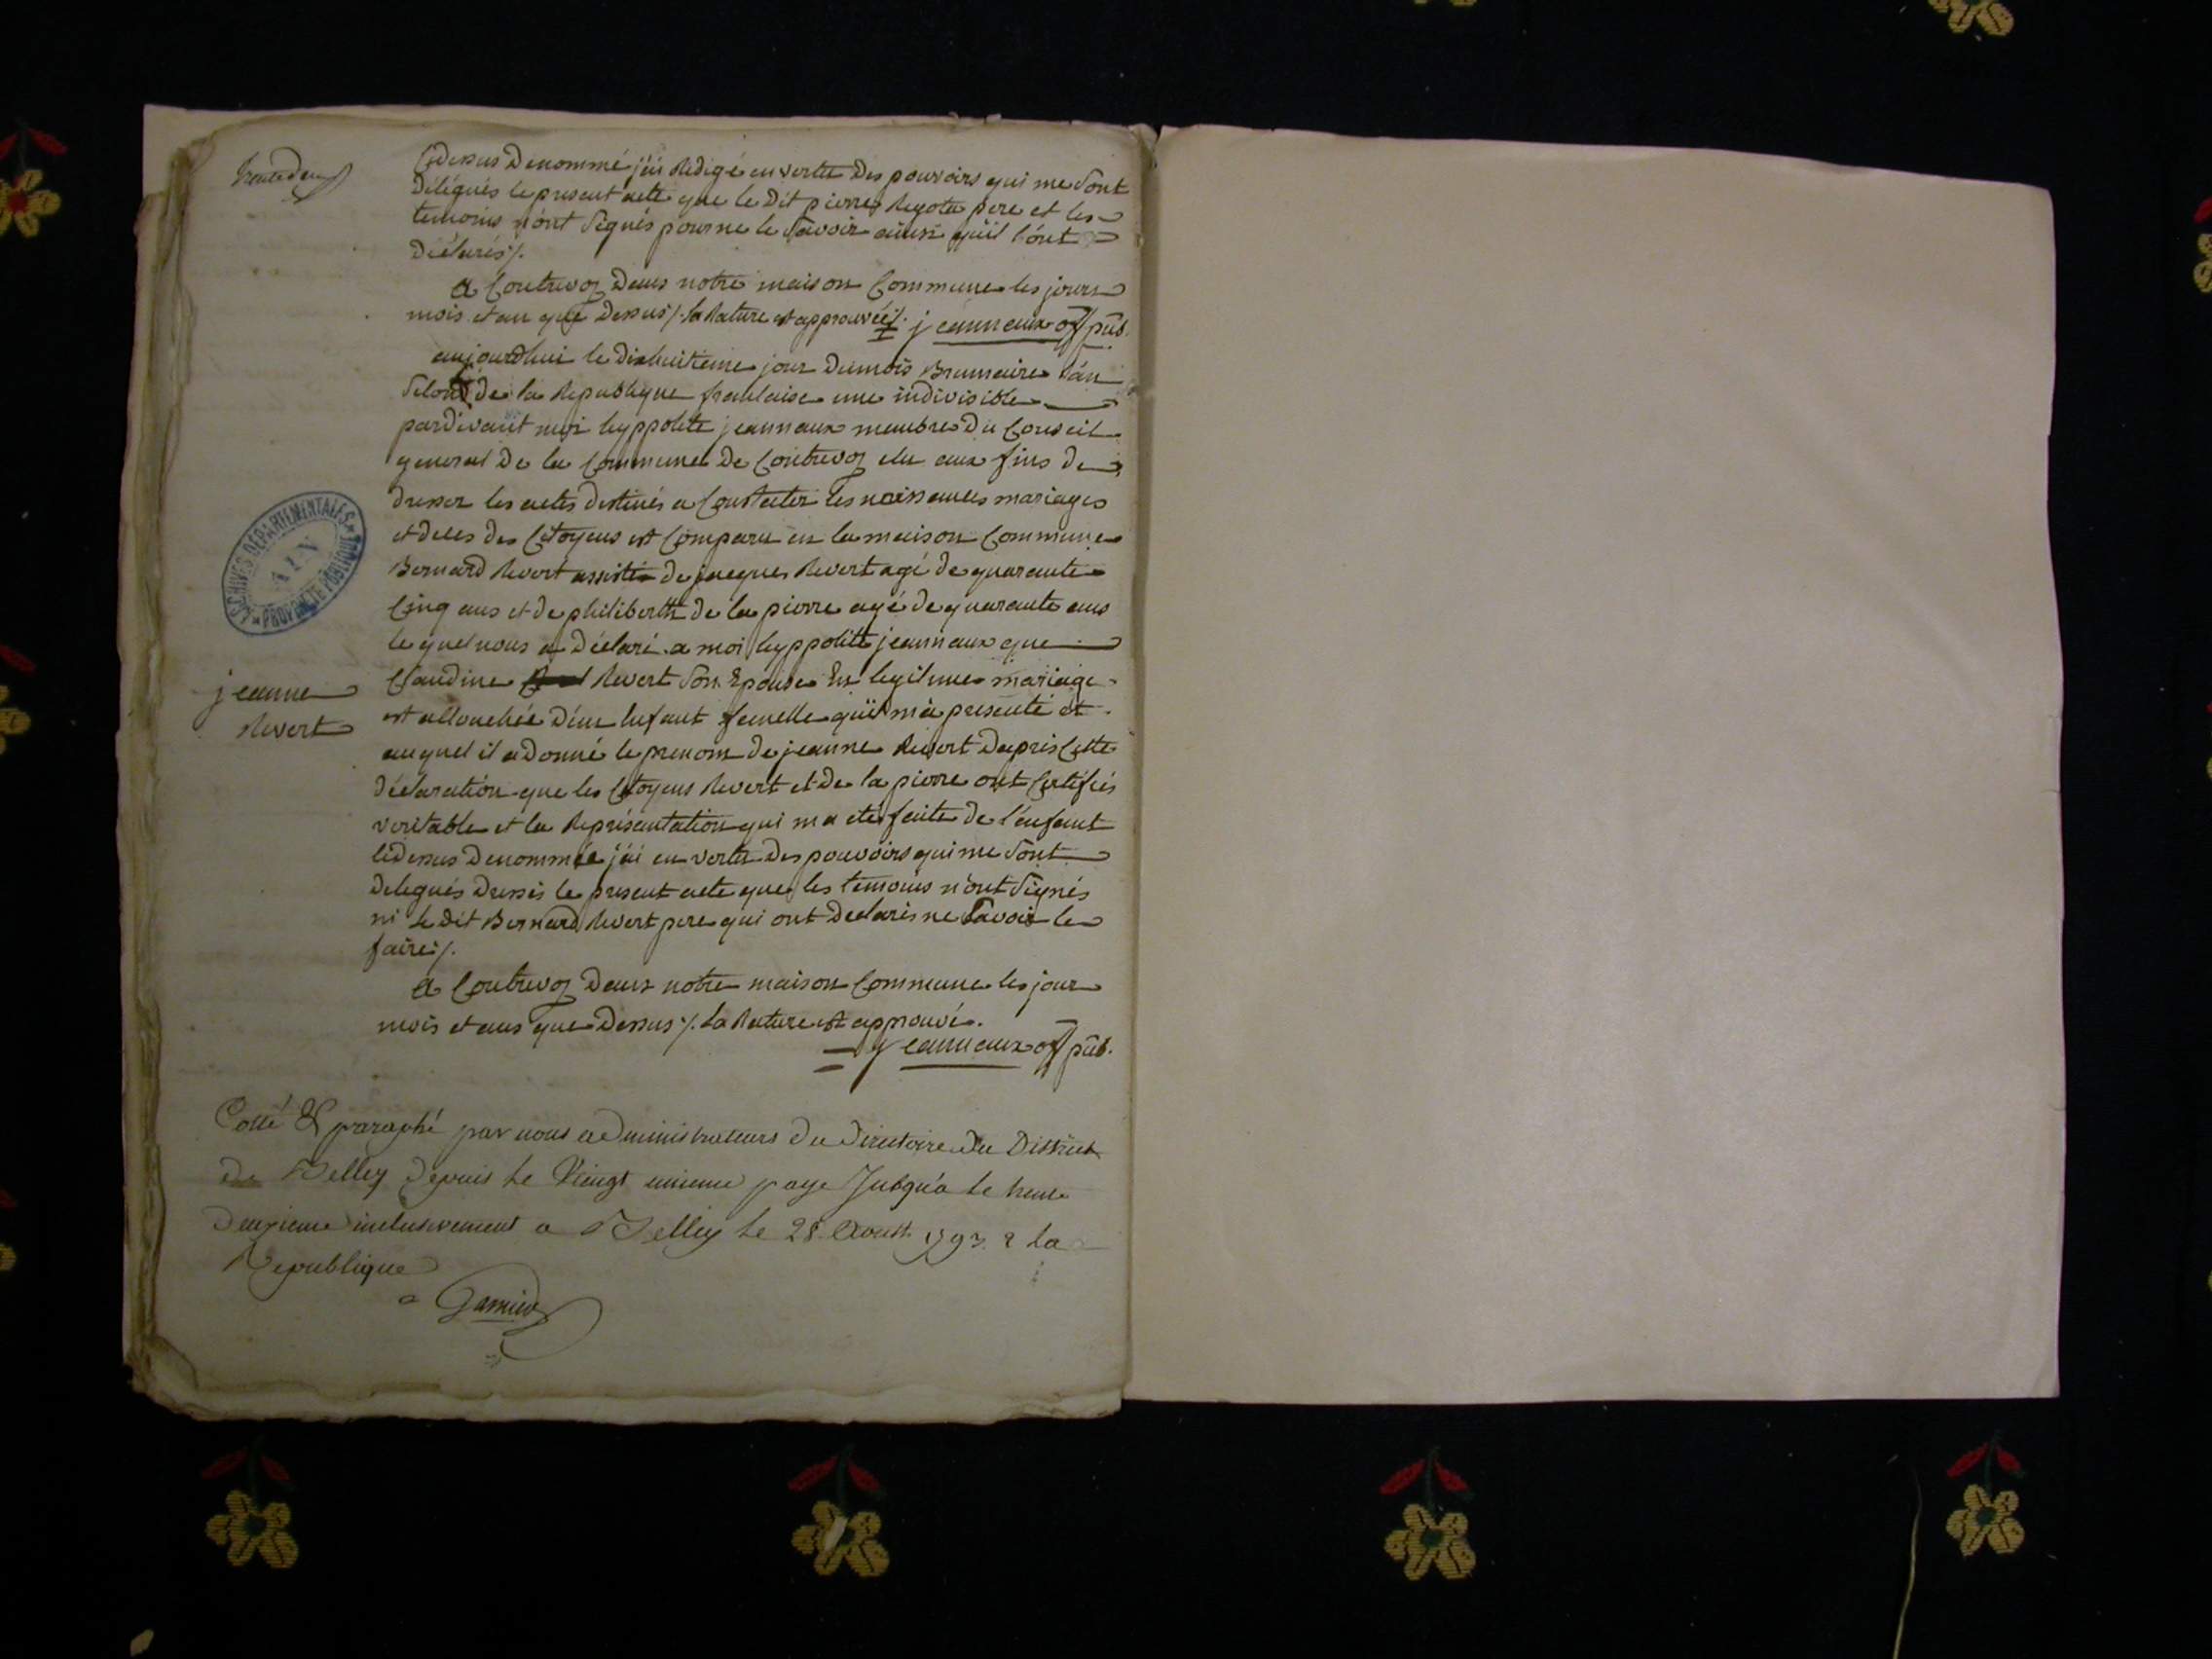 trente deux
Cidessus Denommé j'ai Rédigé en vertu Des pouvoirs qui me sont
Délégués le present acte que le Dit pierre Reyota pere et les
temoins n'ont signés pour ne le savoir ainsi qu'il l'ont
Déclarés /.
A Contrevoz Dans notre maison Commune les jours
mois et an que Dessus /. la Rature est approuvée /. jeannaux off pub.
aujourdhui le Dixhuitieme jour du mois Brumaire l'an
second de la Republique francaise une indivisible
pardevant moi hyppolite jeannaux membre Du Conseil
general De la Commune De Contrevoz elu aux fins de
dresser les actes destinés a Constater les naissances mariages
et deces des Citoyens est Comparu en la maison Commune
Bernard Revert assisté de jacques Revert agé de quarante
Cinq ans et de philiberth de la pierre agé de quarante ans
le quel nous a Déclaré a moi hyppolite jeannaux que
jeanne
Revert
Claudine Revert son Epouse En legitime mariage
est accouchée d'un Enfant femelle qu'il m'a presenté et
auquel il a donné le prenom de jeanne Revert Dapris Cette
déclaration que les Citoyens Revert et de la pierre ont Certifiés
veritable et la Représentation qui ma eté faite de l'enfant
cidessus Denommée j'ai en vertu Des pouvoirs qui me sont
delegués Dressés le present acte que les temoins n'ont signés
ni le dit Bernard Revert pere qui ont declarés ne savoir le
faire /.
A Contrevoz Dans notre maison Commune les jour
mois et ans que Dessus /. la Rature est approuvé.
jeannaux off pub.
Cotté & paraphé par nous administrateurs du Directoire du District
de Belley Depuis le Vingt unieme page Jusqu'a le trente
Deuxieme inclusivement a Belley le 28. Aoust 1793. 2 la
Republique
ARCHIVES DÉPARTEMENTALES
AIN
PROPRIÉTÉ PUBLIQUE